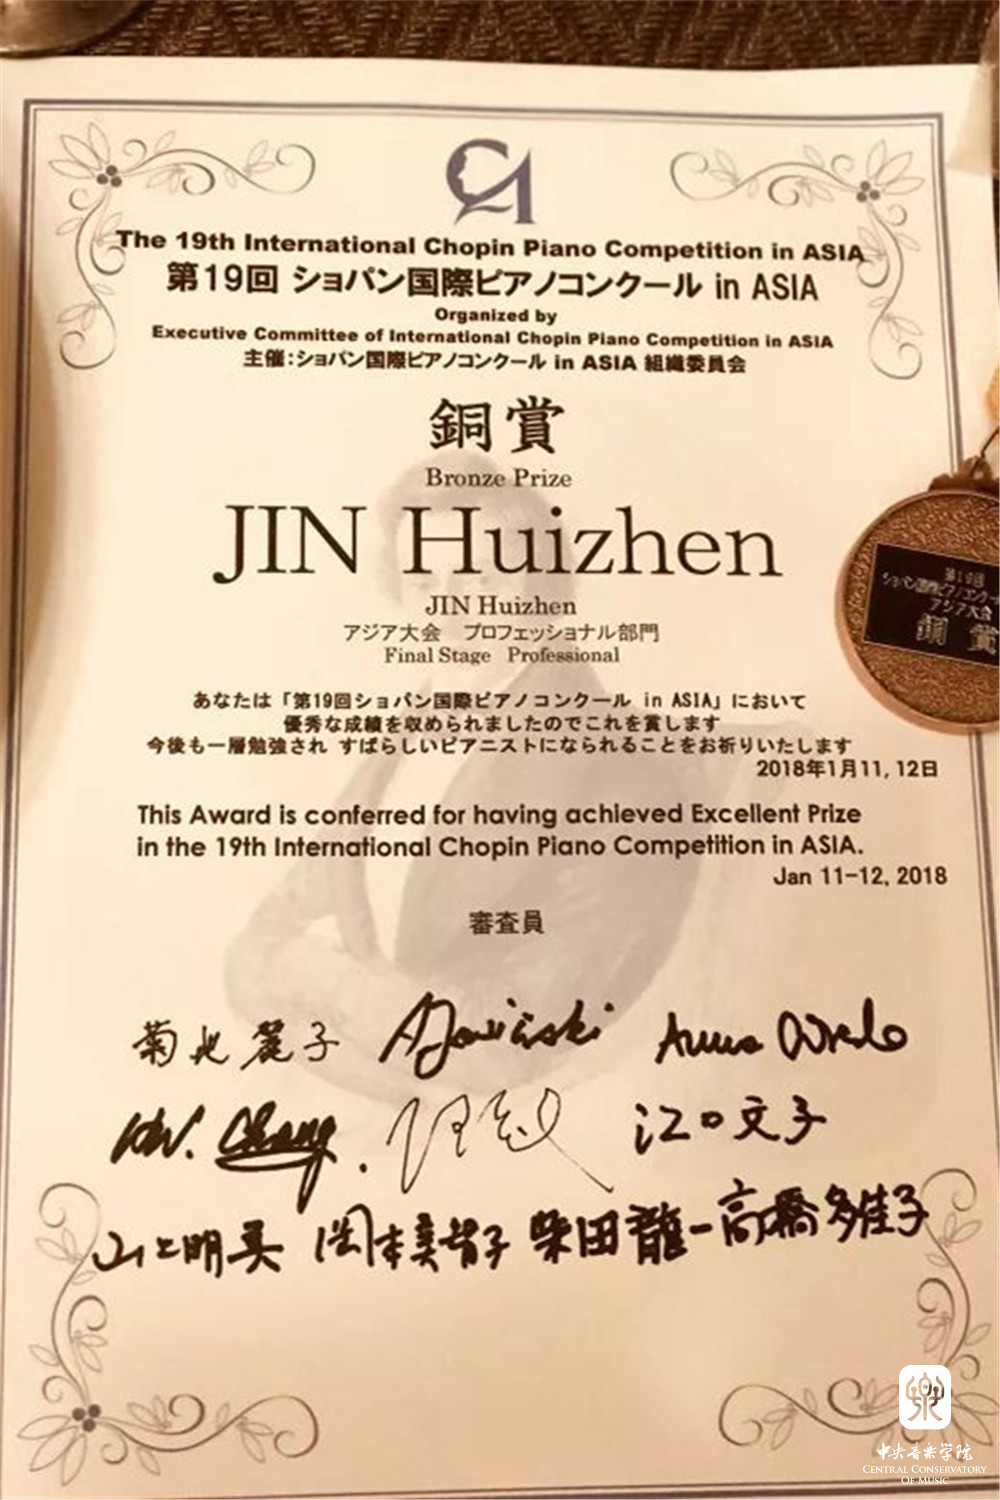 The 19th International Chopin Piano Competition in ASIA
第19回 ショパン国際ピアノコンクール in ASIA
Organized by
Executive Committee of International Chopin Piano Competition in ASIA
主催:ショパン国際ピアノコンクール in ASIA 組織委員会
銅賞
Bronze Prize
JIN Huizhen
JIN Huizhen
アジア大会 プロフェッショナル部門
Final Stage Professional
あなたは「第19回ショパン国際ピアノコンクール in ASIA」において
優秀な成績を収められましたのでこれを賞します
今後も一層勉強され すばらしいピアニストになられることをお祈りいたします
2018年1月11,12日
This Award is conferred for having achieved Excellent Prize
in the 19th International Chopin Piano Competition in ASIA.
Jan 11-12, 2018
審査員
菊地麗子
Chang.
江口文子
山上明美 岡本美智子 柴田龍一 高橋多佳子
第19回
ショパン国際ピアノコンクー
アジア大会
銅賞
中央音乐学院
CENTRAL CONSERVATORY
OF MUSIC